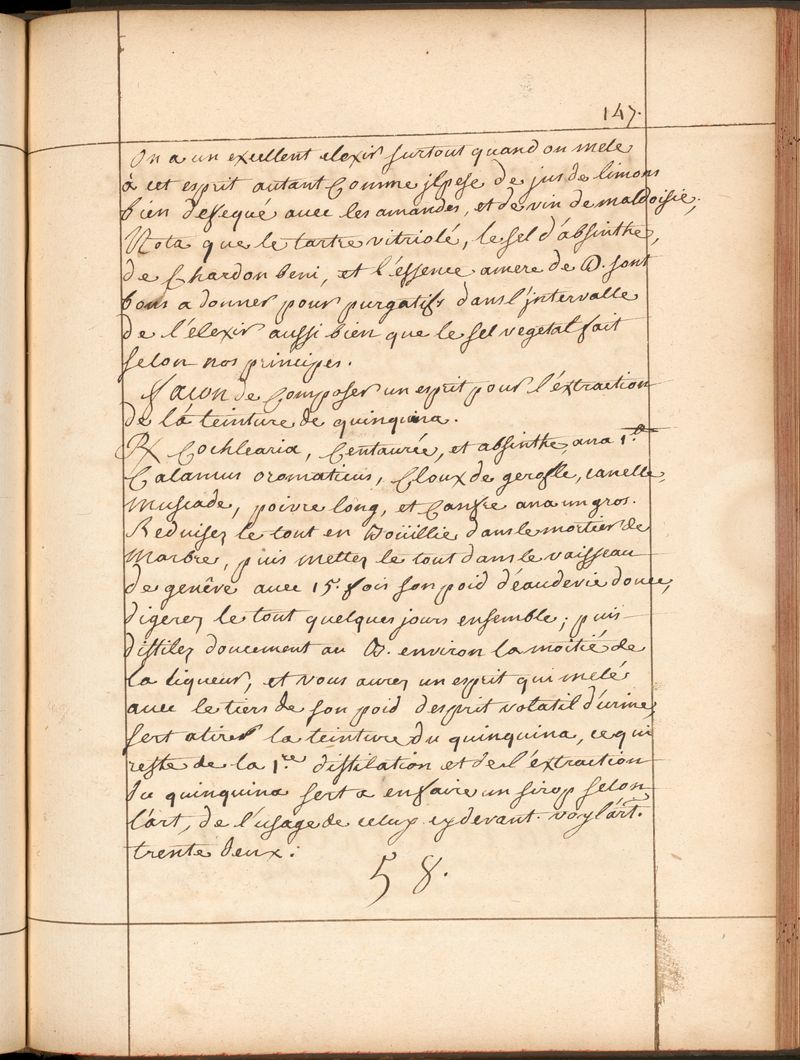 147.
On a un excellent elexir surtout quand on mele
à cet esprit autant Comme jl pese de jus de limons
bien defequé avec les amandes, et de vin de maldoisie,
Nota que le tartre vitriolé, le sel d'absinthe,
de Chardon beni, et l'essence amere de . sont
bons a donner pour purgatifs dans l'jntervalle
de l'élexir aussi bien que le sel vegetal fait
selon nos principes.
façon de Composer un esprit pour l'éxtraction
de la teinture de quinquina.
℞ Cochlearia, Centaurée, et absinthe ana 1.
Calamus aromaticus, Cloux de gerofle, canelle,
muscade, poivre long, et Canfre ana un gros.
Reduisez le tout en Boüillie dans le mortier de
marbre, puis mettez le tout dans le vaisseau
de genêve avec 15. fois son poid d'eaudevie douce,
digerez le tout quelques jours ensemble; puis
distilez doucement au B. environ la moitié de
la liqueur, et vous aurez un esprit qui melé
avec le tiers de son poid d'esprit volatil d'urine,
sert a tirer la teinture du quinquina, ce qui
reste de la 1.re distilation et de l'éxtraction
du quinquina sert a en faire un sirop selon
l'art, de l'usage de celuy cydevant. voy l'art.
trente deux.
58.